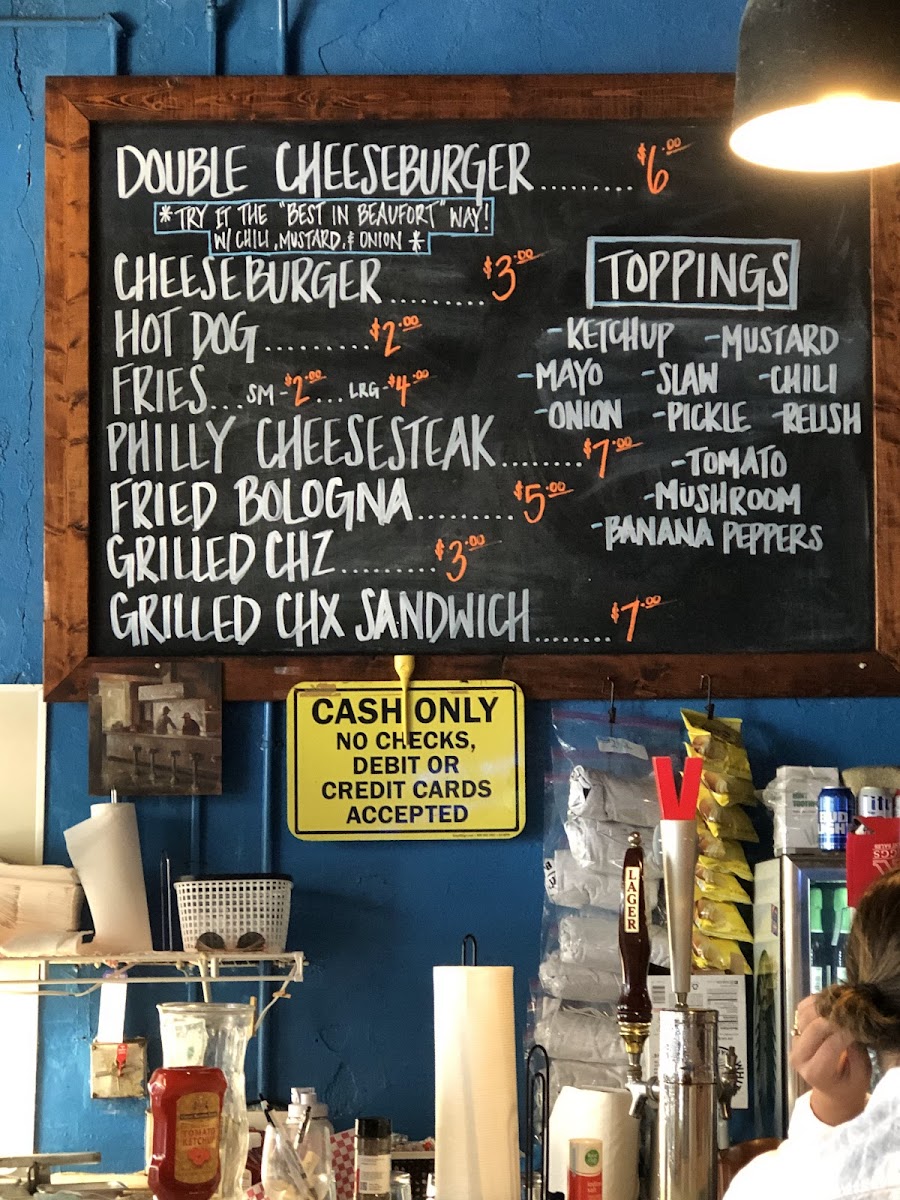 DOUBLE CHEESEBURGER........ $6.00
*TRY IT THE "BEST IN BEAUFORT" WAY!
W/ CHILI, MUSTARD, & ONION *
CHEESEBURGER......... $3.00
HOT DOG.......... $2.00
FRIES... SM - $2.00... LRG - $4.00
PHILLY CHEESESTEAK....... $7.00
FRIED BOLOGNA......... $5.00
GRILLED CHZ........ $3.00
GRILLED CHX SANDWICH....... $7.00
TOPPINGS
-KETCHUP -MUSTARD
-MAYO -SLAW -CHILI
-ONION -PICKLE -RELISH
-TOMATO
-MUSHROOM
-BANANA PEPPERS
CASH ONLY
NO CHECKS,
DEBIT OR
CREDIT CARDS
ACCEPTED
LAGER
BUD
TOMATO
KETCHUP